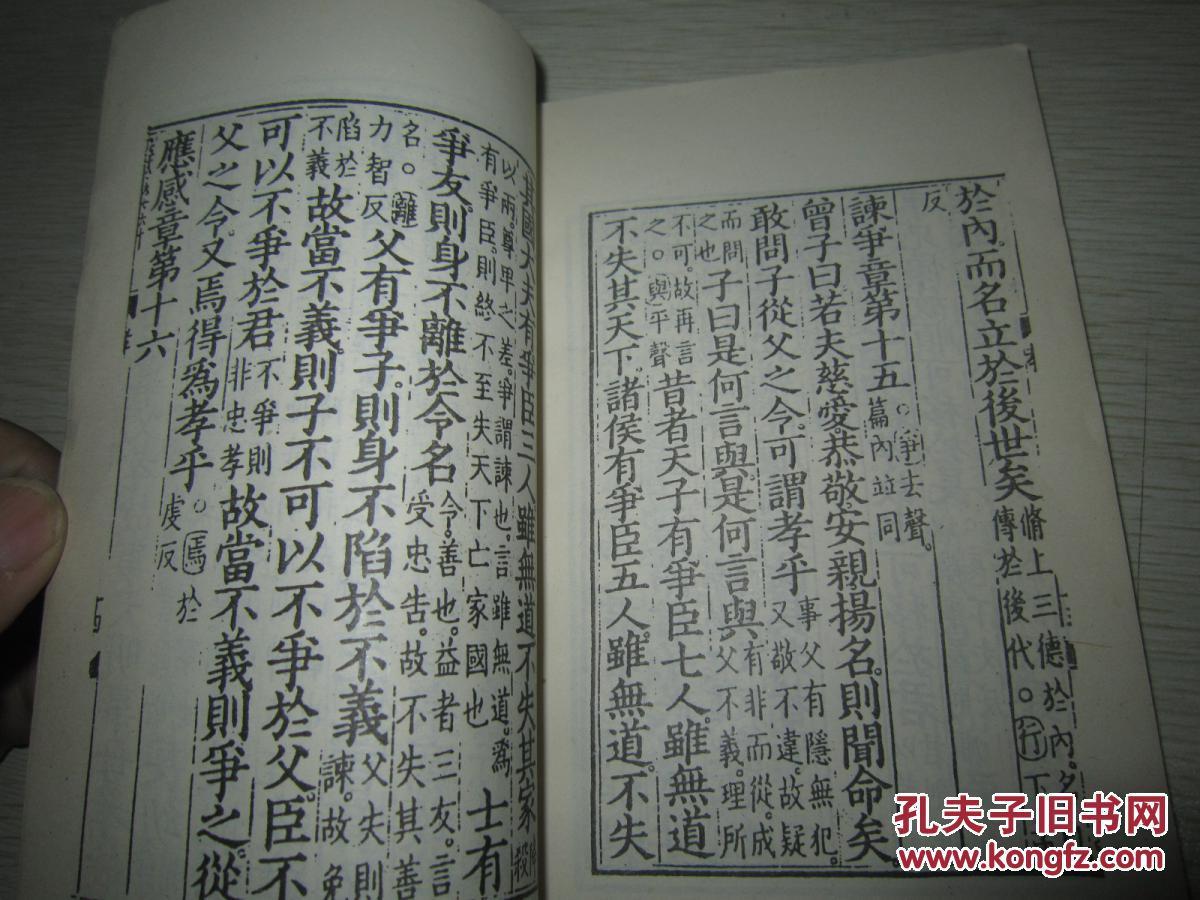 於內。而名立於後世矣脩上三德於內。名
傳於後代。○行下
反
諫爭章第十五。爭去聲。
篇內並同
曾子曰若夫慈愛。恭敬。安親揚名。則聞命矣。
敢問子從父之令。可謂孝乎事父有隱無犯。
又敬不違。故疑
而問
之也子曰是何言與。是何言與有非而從。成
父不義。理所
不可。故再言
之。○與平聲昔者天子有爭臣七人。雖無道
不失其天下。諸侯有爭臣五人。雖無道。不失
其國大夫有爭臣三人雖無道不失其家降殺
以兩。尊卑之差。爭謂諫也。言雖無道。爲
有爭臣。則終不至失天下亡家國也士有
爭友。則身不離於令名令。善也。益者三友。言
受忠告。故不失其善
名。○離
力智反父有爭子。則身不陷於不義父失則
諫。故免
陷於
不義故當不義。則子不可以不爭於父。臣不
可以不爭於君不爭則
非忠孝故當不義則爭之。從
父之令。又焉得爲孝乎。○焉於
虔反
應感章第十六
孔夫子旧书网
www.kongfz.com